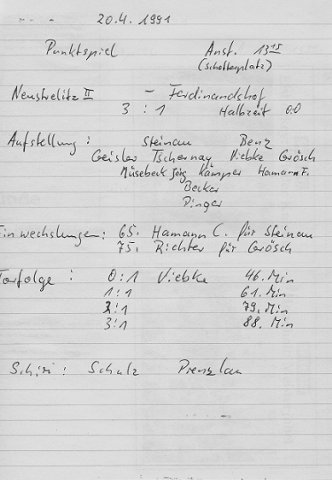 20.4. 1991
Punktspiel Anst. 13¹⁵
(Schotterplatz)
Neustrelitz II - Ferdinandshof
3 : 1 Halbzeit 0:0
Aufstellung : Steinau Benz
Geisler Tschernay Viebke Grösch
Müsebeck Jörg Kämper Hamann F.
Becker
Dinger
Einwechslungen: 65. Hamann C. für Steinau
75. Richter für Grösch
Torfolge : 0:1 Viebke 46. Min
1:1 61. Min
2:1 79. Min
3:1 88. Min
Schiri : Schulz Prenzlau